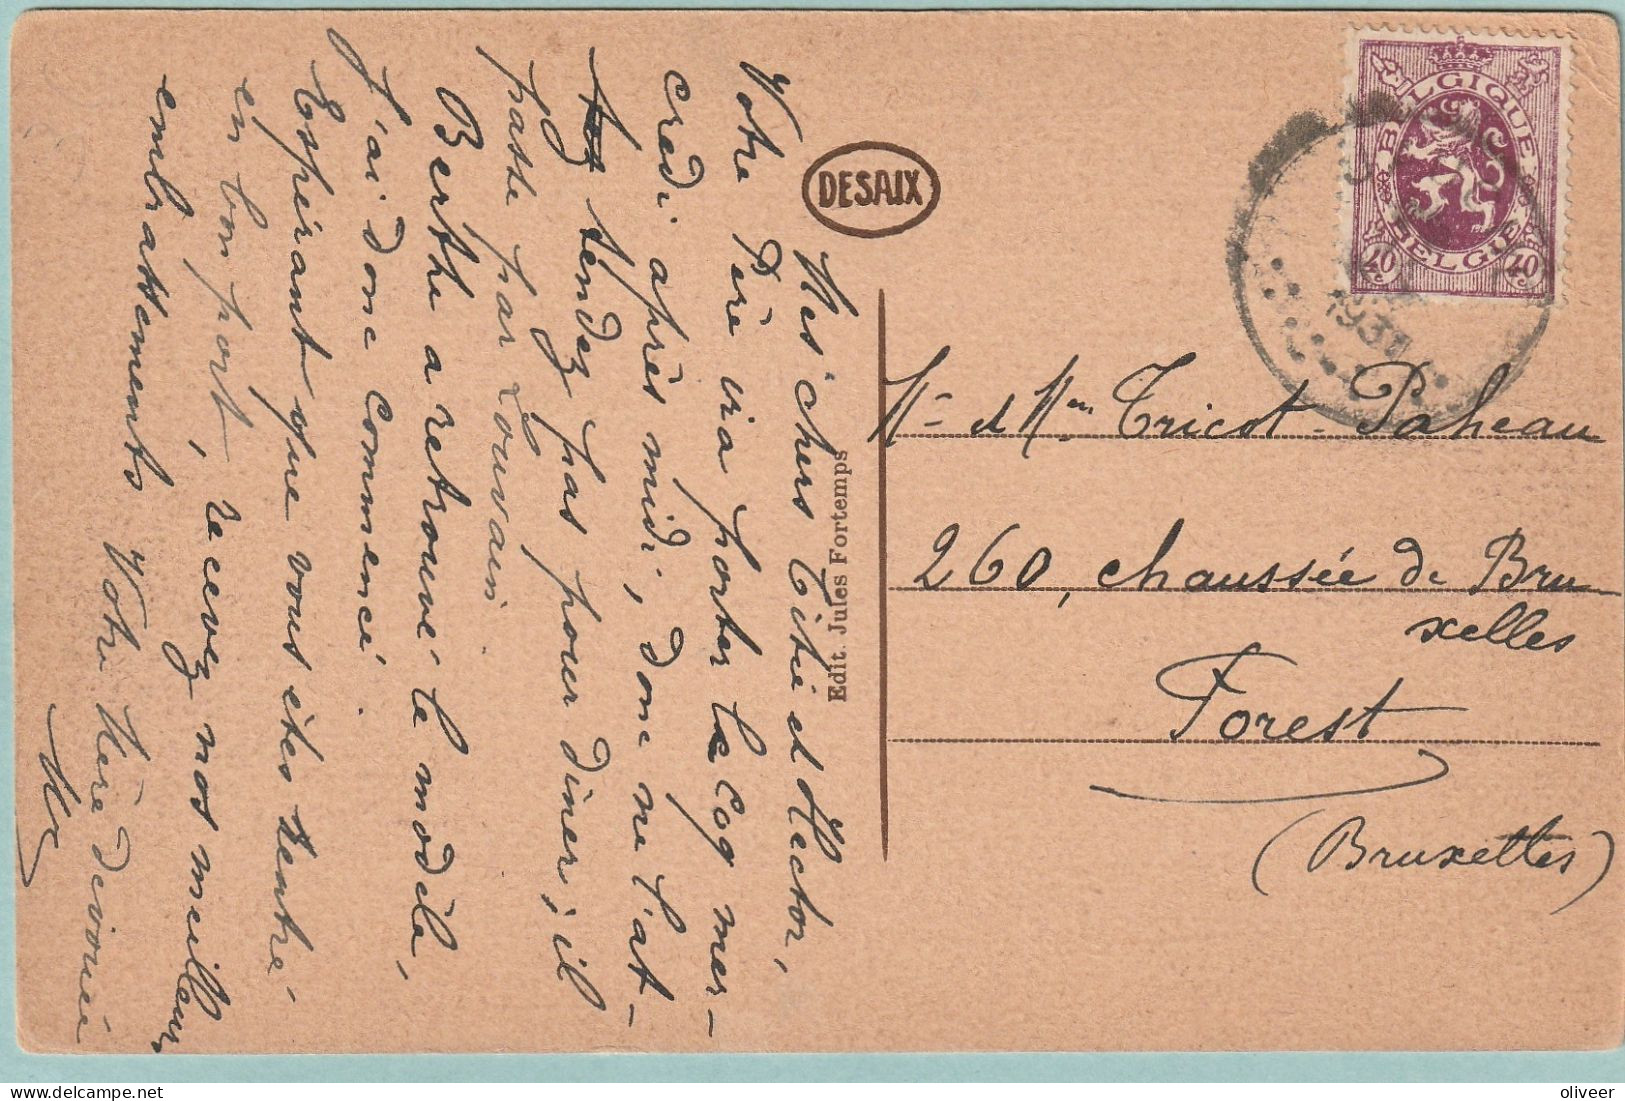 Mes chers Titi et Hector,
Votre Père ira porter le coq mer-
credi après midi, donc ne l'at-
tendez pas pour dîner; il
passe par Louvain.
Berthe a retrouvé le modèle,
j'ai donc commencé.
Espérant que vous êtes rentré
en bon port, recevez nos meilleurs
embrassements Votre Mère dévouée
DESAIX
Edit. Jules Fortemps
BELGIQUE
BELGIË
40c 40c
1931
Mr et Mme Tricot-Paheau
260, chaussée de Bru-
xelles
Forest
(Bruxelles)
delcampe.net
oliveer